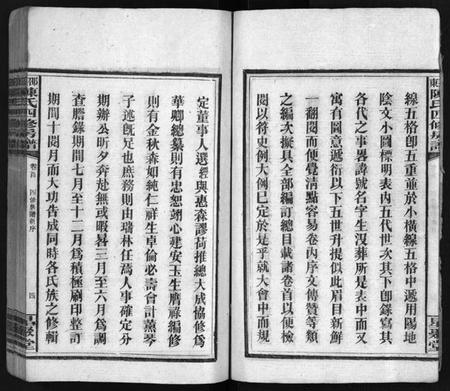 線五格卽五重並於小橫線五格中選用陽地
陰文小圖標明表內五代世次其下卽錄寫其
各代之事畧諱號名字生沒葬所是表中而又
寓有圖意遞衍以下五世升提似此眉目新鮮
一翻閱而便覺清點容易卷內序文傳贊等類
之編次擬具全部編訂總目載諸卷首以便檢
閱以符史例大例已定於是乎就大會中而規
陳氏四修房譜
定董事人選經與惠森謬荷推總大成協修爲
華卿總纂則有忠恕翊心建安玉生膺祿編修
則有金秋森如純仁祥生卓倫必壽會計薰琴
子述旣足也庶務則由瑞林任焉人事確定分
期辦公昕夕奔赴無或暇晷三月至六月爲調
查謄錄期間七月至十二月爲積極刷印整訂
期間十閱月而大功告成同時各氏族之修輯
陳氏四修房譜
卷首
四修房譜新序
四